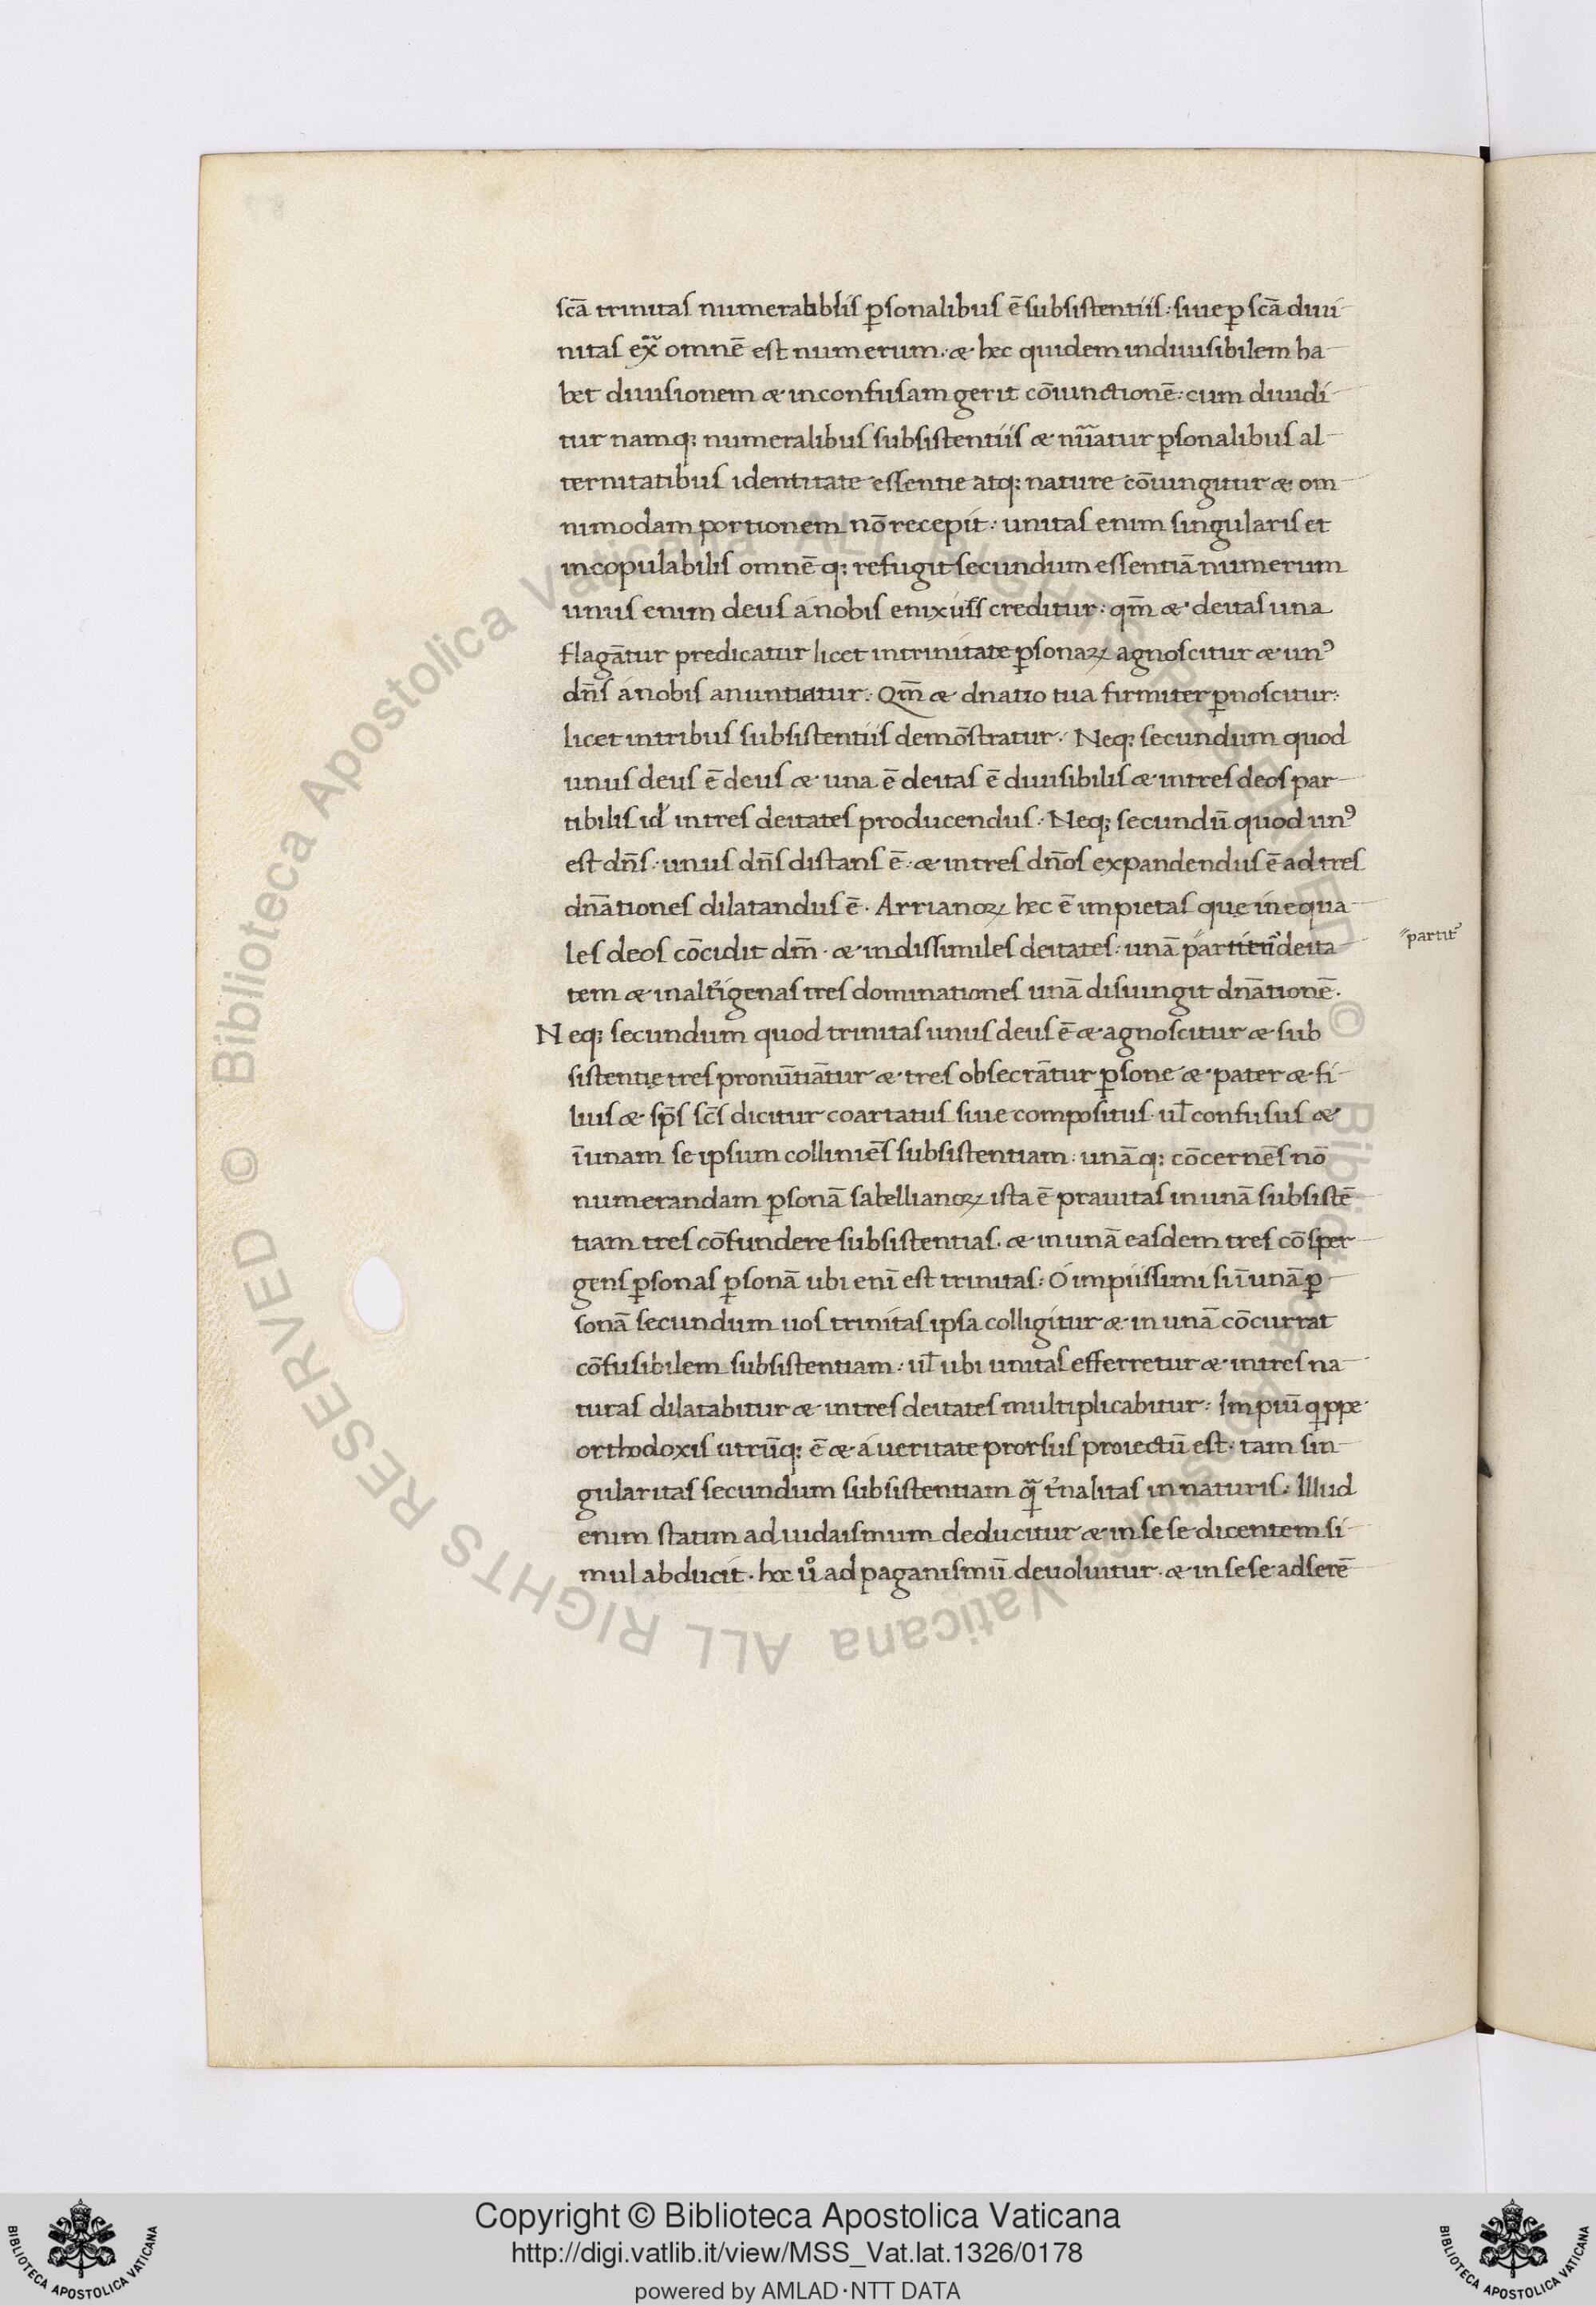 scā trinitas numerabiblis ꝑsonalibus ē subsistentiis: siue ꝑ scā diui
nitas exͣ omnē est numerum. & hec quidem indiuisibilem ha
bet diuisionem & inconfusam gerit cōiunctionē: cum diuidi
tur namq: numeralibus subsistentiis & nūatur ꝑsonalibus al
ternitatibus identitate essentie atq: nature cōiungitur & om
nimodam portionem nō recepit: unitas enim singularis et
incopulabilis omnēq: refugit secundum essentiā numerum
unus enim deus a nobis enixius creditur: qm̄ & deitas una
flagātur predicatur licet in trinitate ꝑsonaꝝ agnoscitur & unꝰ
dn̄s a nobis anuntiatur: Qm̄ & dnatio tua firmiter ꝑnoscitur:
licet in tribus subsistentiis demōstratur. Neq: secundum quod
unus deus ē deus & una ē deitas ē diuisibilis & in tres deos par
tibilis id in tres deitates producendus: Neq: secundū quod unꝰ
est dn̄s: unus dn̄s distans ē: & in tres dn̄os expandendus ē ad tres
dn̄ationes dilatandus ē. Arrianoꝝ hec ē impietas que inequa
les deos cōcidit dm̄. & in dissimiles deitates: unā deita
partitꝰ
tem & in altͥigenas tres dominationes unā disiungit dn̄ationē.
Neq: secundum quod trinitas unus deus ē & agnoscitur & sub
sistentię tres pronūtiātur & tres obsecrātur ꝑsone & pater & fi
lius & sp̄s sc̄s dicitur coartatus siue compositus ul̄ confusus &
ī unam se ipsum colliniēs subsistentiam: unāq: cōcernēs nō
numerandam ꝑsonā sabellianoꝝ ista ē prauitas in unā subsistē
tiam tres cōfundere subsistentias. & in unā easdem tres cōsper
gens ꝑsonas ꝑsonā ubi enī est trinitas: O impiissimi si ī unā ꝑ
sonā secundum uos trinitas ipsa colligitur & in unā cōcurrat
cōfusibilem subsistentiam: ul̄ ubi unitas efferretur & in tres na
turas dilatabitur & in tres deitates multiplicabitur: Impiū qͥppe
orthodoxis utrūq: ē & a ueritate prorsus proiectū est. tam sin
gularitas secundum subsistentiam qͣ tͥnalitas in naturis: Illud
enim statim ad iudaismum deducitur & in se se dicentem si
mul abducit. hoc uͦ ad paganismū deuoluitur. & in sese adserē
Copyright © Biblioteca Apostolica Vaticana
http://digi.vatlib.it/view/MSS_Vat.lat.1326/0178
powered by AMLAD·NTT DATA
© Biblioteca Apostolica Vaticana ALL RIGHTS RESERVED
© Biblioteca Apostolica Vaticana ALL RIGHTS RESERVED
BIBLIOTECA APOSTOLICA VATICANA
BIBLIOTECA APOSTOLICA VATICANA